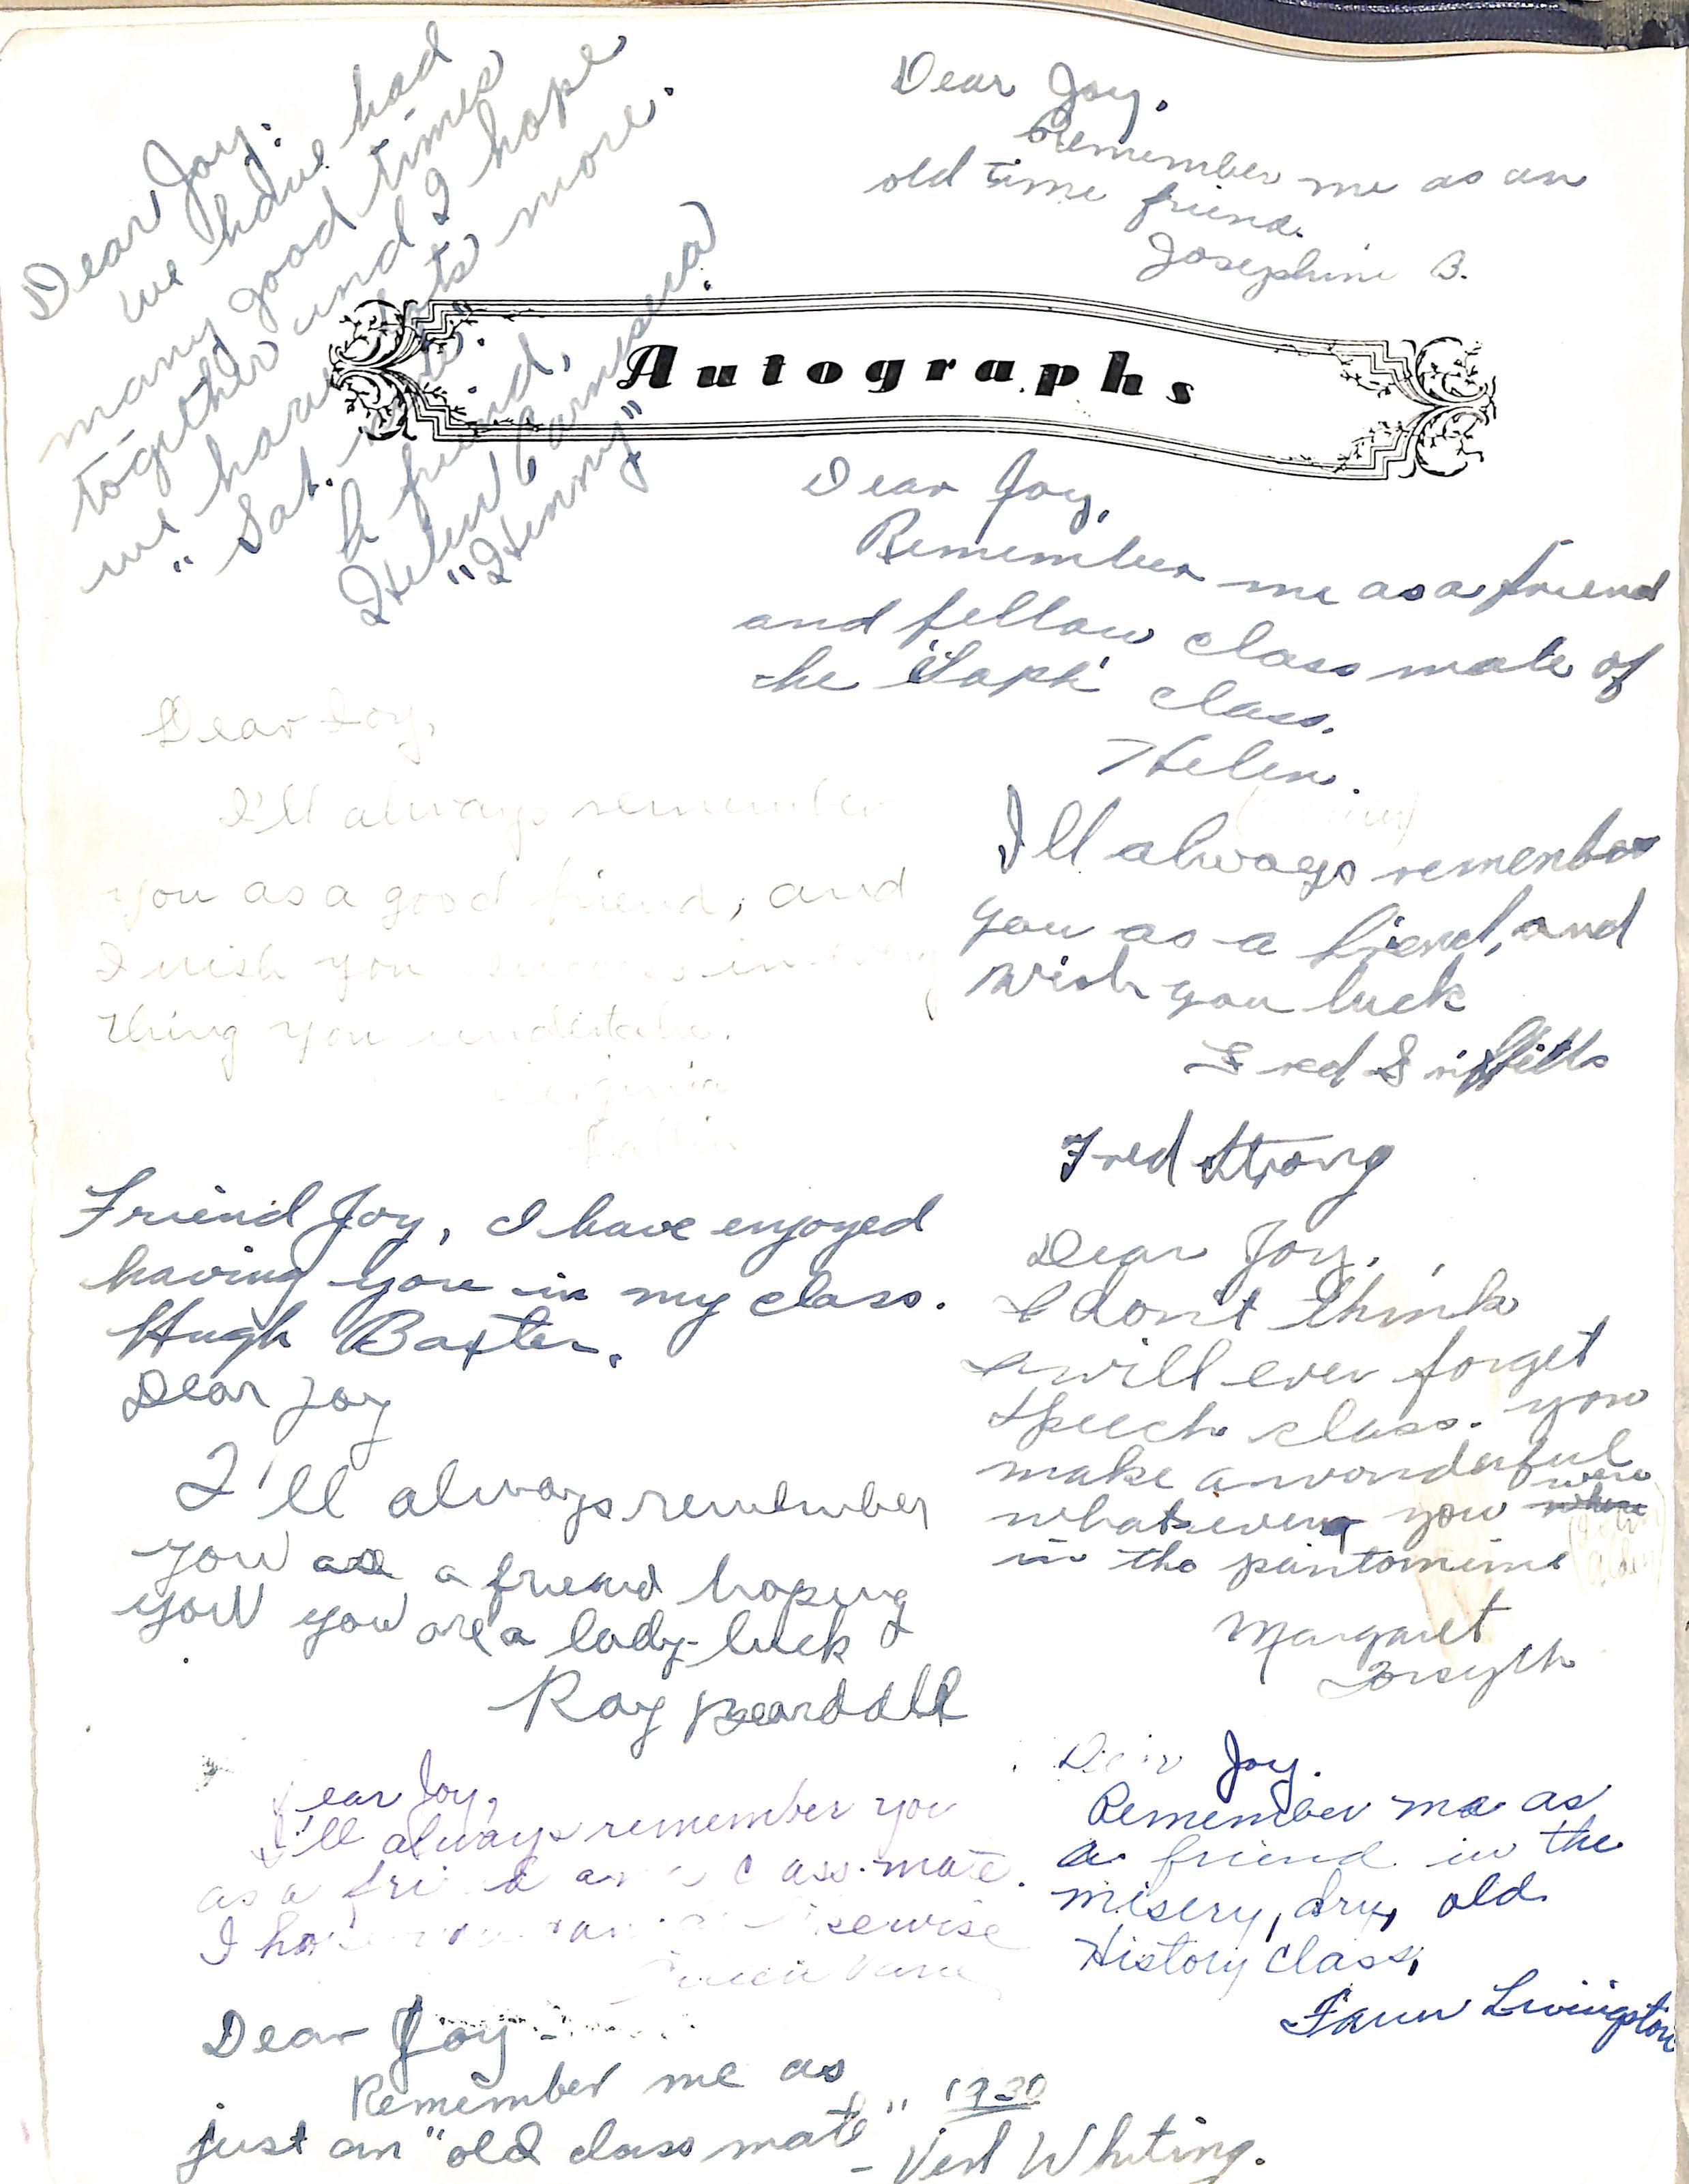 Dear Joy:
we have had
many good times
together and I hope
we have lots more.
"Sat. nite".
A friend,
Helen
"Henny"
Dear Joy,
Remember me as an
old time friend.
Josephine B.
Autographs
Dear Joy,
Remember me as a friend
and fellow class mate of
the "Soph" class.
Helen.
Dear Joy,
I'll always remember
you as a good friend, and
I wish you success in every
thing you undertake.
Virginia
I'll always remember
you as a friend, and
wish you luck
Fred Griffitts
Fred Strong
Friend Joy, I have enjoyed
having you in my class.
Hugh Baxter.
Dear Joy,
I don't think
I will ever forget
speech class. you
make a wonderful
whatsever you were
in the pantomime
(John Alden)
Margaret
Forsyth
Dear Joy
I'll always remember
you as a friend hoping
you you are a lady-luck
Ray Bearddall
Dear Joy,
I'll always remember you
as a friend and class-mate.
I hope you can likewise
Dear Joy.
Remember me as
a friend in the
misery, dry, old
History class,
Faun Livingston
Dear Joy-
Remember me as
just an "old class mate" 1930
- Verl Whiting.